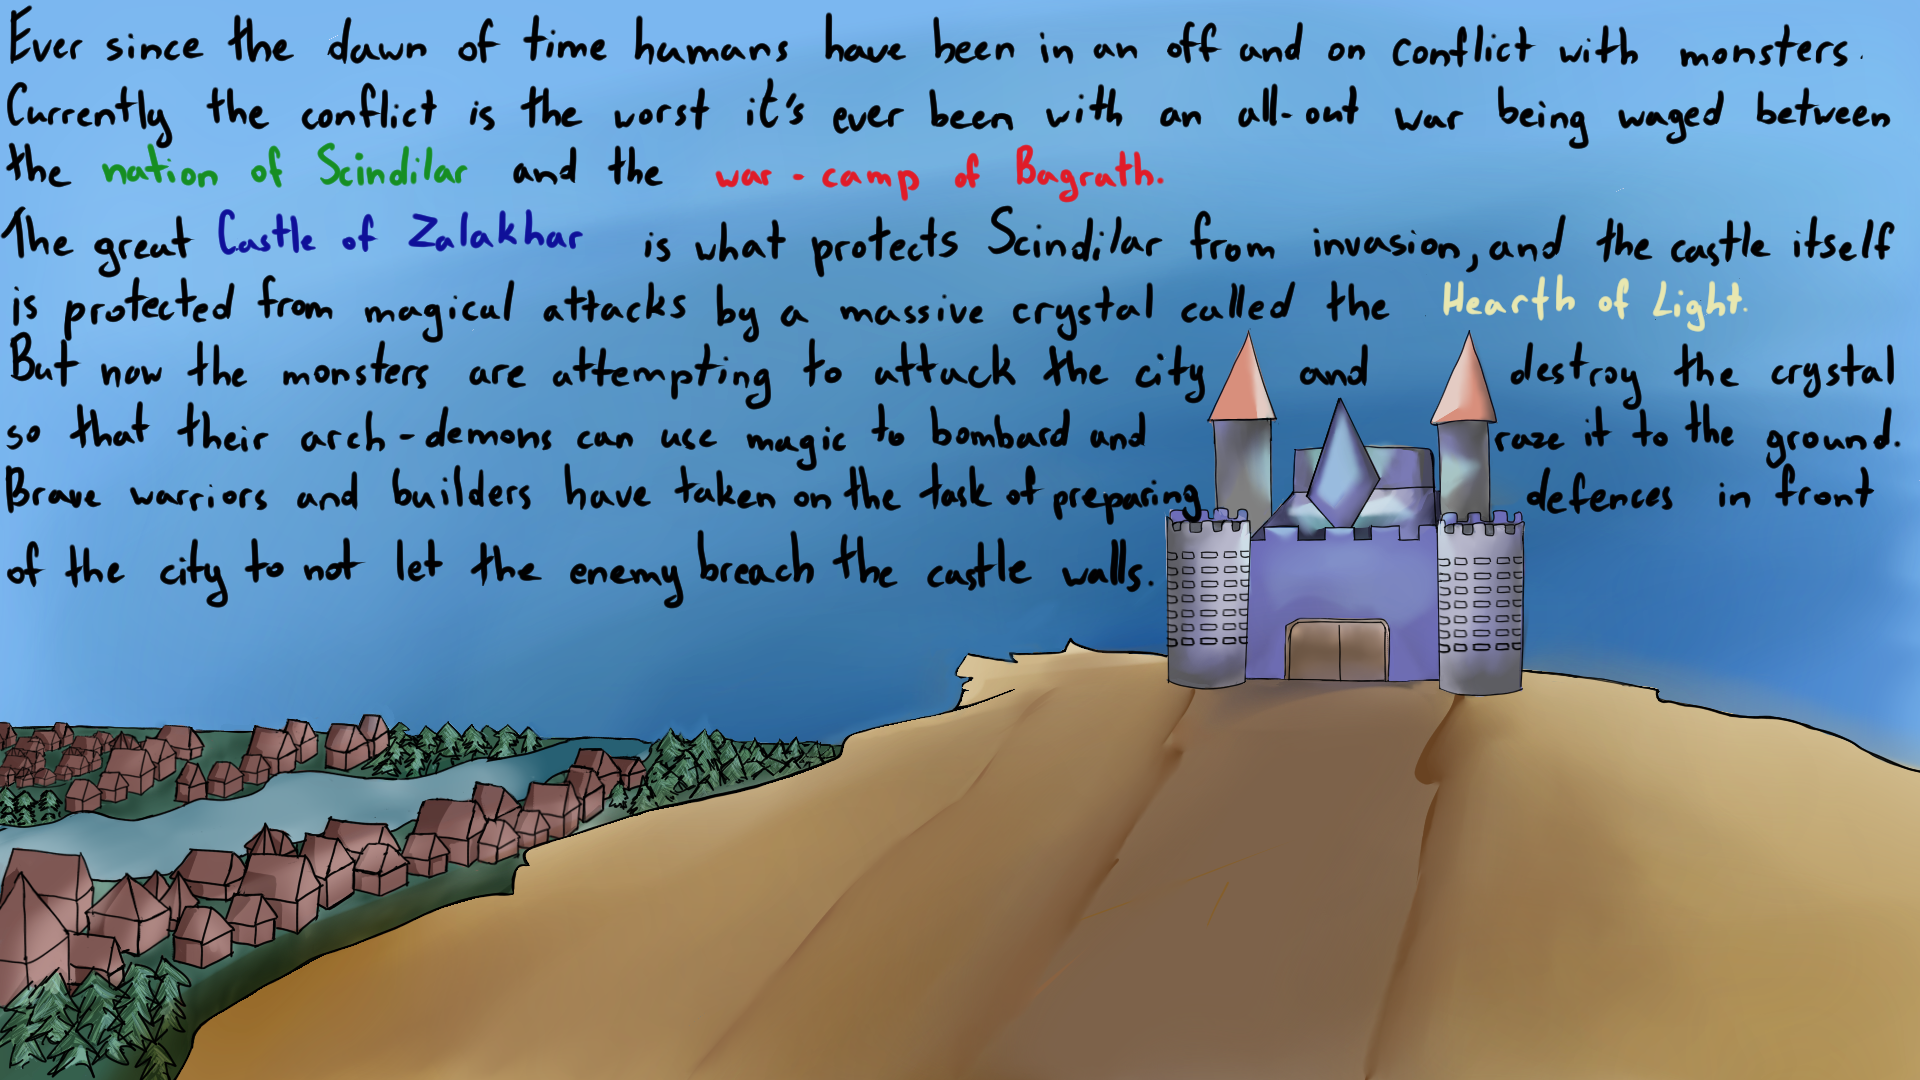 Ever since the dawn of time humans have been in an off and on conflict with monsters.
Currently the conflict is the worst it's ever been with an all-out war being waged between
the nation of Scindilar and the war-camp of Bagrath.
The great Castle of Zalakhar is what protects Scindilar from invasion, and the castle itself
is protected from magical attacks by a massive crystal called the Hearth of Light.
But now the monsters are attempting to attack the city and destroy the crystal
so that their arch-demons can use magic to bombard and raze it to the ground.
Brave warriors and builders have taken on the task of preparing defences in front
of the city to not let the enemy breach the castle walls.